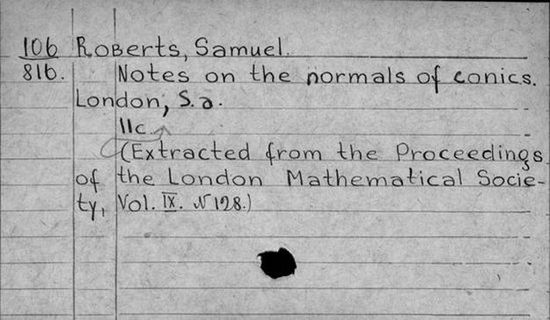 106 Roberts, Samuel.
816. Notes on the normals of conics.
London, S.a.
11c.
(Extracted from the Proceedings
of the London Mathematical Socie-
ty, Vol. IX. N128.)